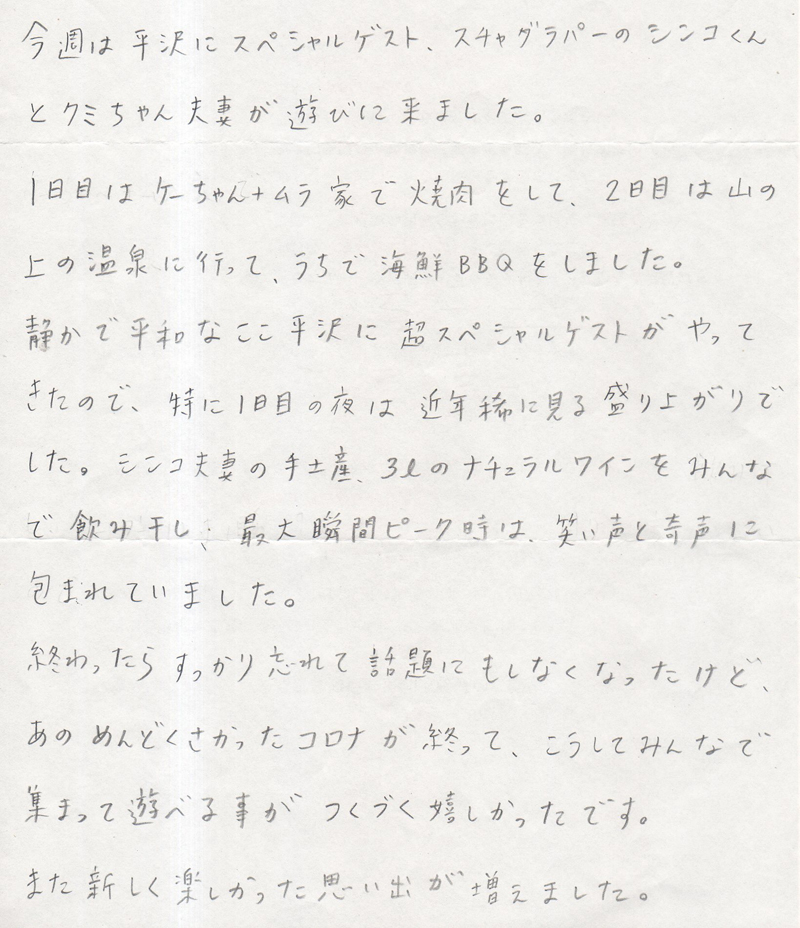 今週は平沢にスペシャルゲスト、スチャダラパーのシンコくん
とクミちゃん夫妻が遊びに来ました。
1日目はケーちゃん+ムラ家で焼肉をして、2日目は山の
上の温泉に行って、うちで海鮮BBQをしました。
静かで平和なここ平沢に超スペシャルゲストがやって
きたので、特に1日目の夜は近年稀に見る盛り上がりで
した。シンコ夫妻の手土産、3lのナチュラルワインをみんな
で飲み干し、最大瞬間ピーク時は、笑い声と奇声に
包まれていました。
終わったらすっかり忘れて話題にもしなくなったけど、
あのめんどくさかったコロナが終って、こうしてみんなで
集まって遊べる事がつくづく嬉しかったです。
また新しく楽しかった思い出が増えました。